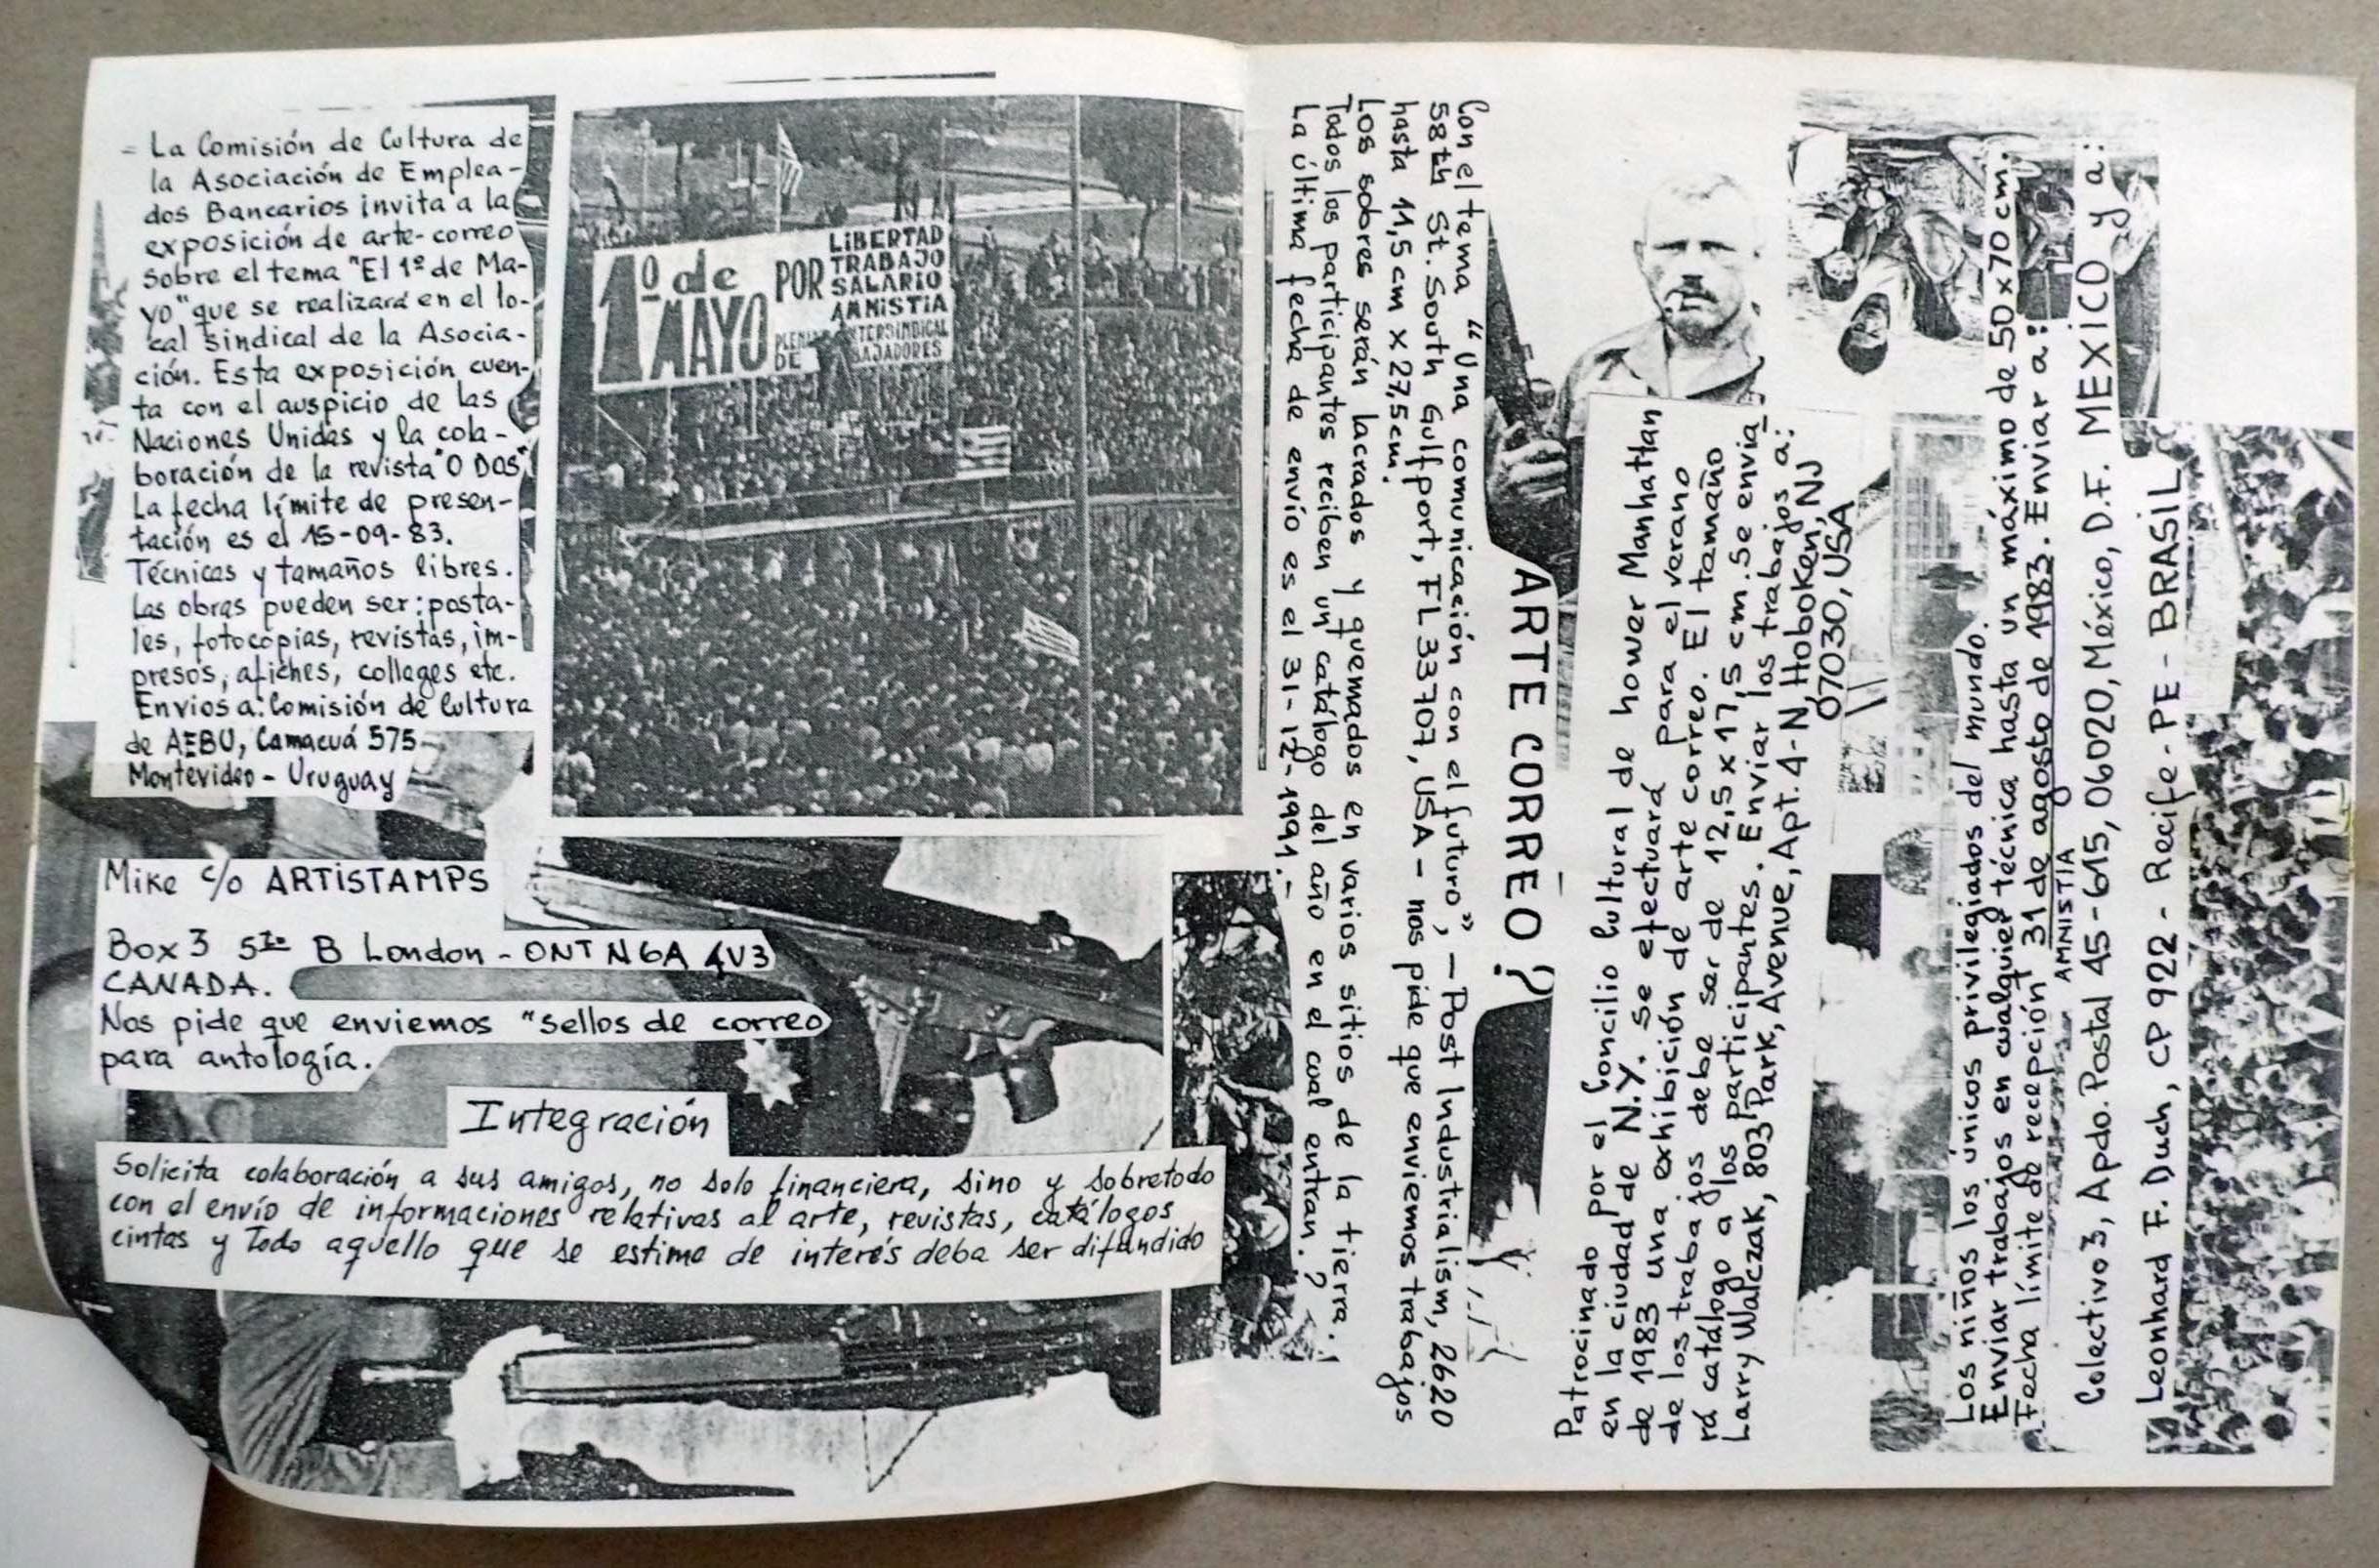 = La Comisión de Cultura de
la Asociación de Emplea-
dos Bancarios invita a la
exposición de arte-correo
sobre el tema "El 1º de Ma-
yo" que se realizará en el lo-
cal sindical de la Asocia-
ción. Esta exposición cuen-
ta con el auspicio de las
Naciones Unidas y la cola-
boración de la revista "O DOS"
La fecha límite de presen-
tación es el 15-09-83.
Técnicas y tamaños libres.
Las obras pueden ser: posta-
les, fotocopias, revistas, im-
presos, afiches, collages etc.
Envios a: Comisión de Cultura
de AEBU, Camacuá 575
Montevideo - Uruguay
1º de
MAYO
POR
LIBERTAD
TRABAJO
SALARIO
AMNISTIA
INTERSINDICAL
DE
Mike c/o ARTISTAMPS
Box 3 B London - ONT N6A 4V3
CANADA.
Nos pide que enviemos "sellos de correo
para antología.
Integración
Solicita colaboración a sus amigos, no solo financiera, sino y sobretodo
con el envío de informaciones relativas al arte, revistas, catálogos
cintas y todo aquello que se estime de interés deba ser difundido
Con el tema "Una comunicación con el futuro", - Post Industrialism, 2620
58th St. South Gulfport, FL 33707, USA - nos pide que enviemos trabajos
hasta 11,5 cm x 27,5 cm.
Los sobres serán lacrados y quemados en varios sitios de la tierra.
Todos los participantes reciben un catálogo del año en el cual entran.?
La última fecha de envío es el 31-12-1991.-
ARTE CORREO?
Patrocinado por el Concilio Cultural de hower Manhattan
en la ciudad de N.Y. se efectuará para el verano
de 1983 una exhibición de arte correo. El tamaño
de los trabajos debe ser de 12,5 x 17,5 cm. Se envia_
rá catálogo a los participantes. Enviar los trabajos a:
Larry Walczak, 803 Park, Avenue, Apt. 4-N, Hoboken, NJ
07030, USA
Los niños los únicos privilegiados del mundo.
Enviar trabajos en cualquier técnica hasta un máximo de 50 x 70 cm.
Fecha límite de recepción 31 de agosto de 1983. Enviar a:
AMNISTIA
Colectivo 3, Apdo. Postal 45-615, 06020, México, D.F. MEXICO y a:
Leonhard F. Duch, CP 922 - Recife - PE - BRASIL